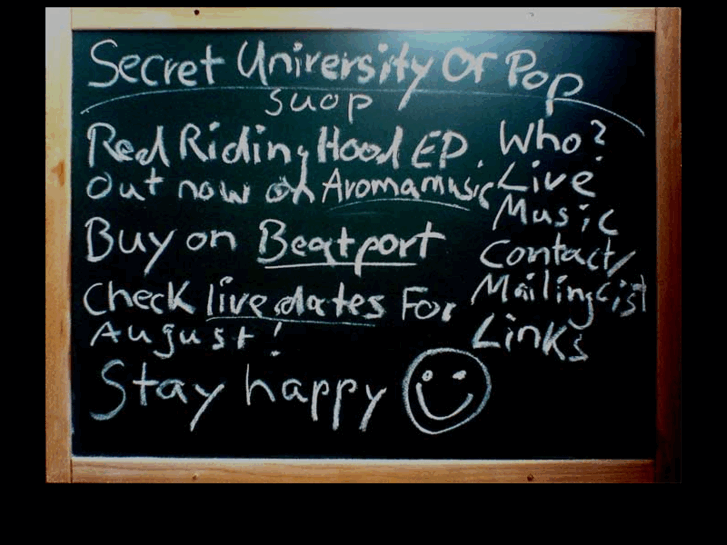 Secret University Of Pop
SUOP
Red Riding Hood EP.
Out now on Aromamusic
Buy on Beatport
Check live dates For
August!
Stay happy
Who?
Live
Music
Contact/
Mailinglist
Links